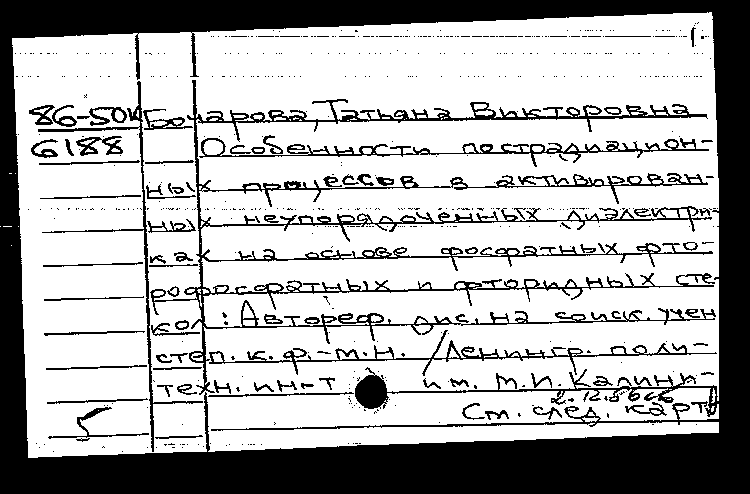 86-50к Бочарова, Татьяна Викторовна
6188 Особенности пострадиацион-
ных процессов в активирован-
ных неупорядоченных диэлектри-
ках на основе фосфатных, фто-
рофосфатных и фторидных сте-
кол: Автореф. дис. на соиск. учен
степ. к. ф.-м.н. / Ленингр. поли-
техн. ин-т им. М.И. Калини-
См. след. карт
5